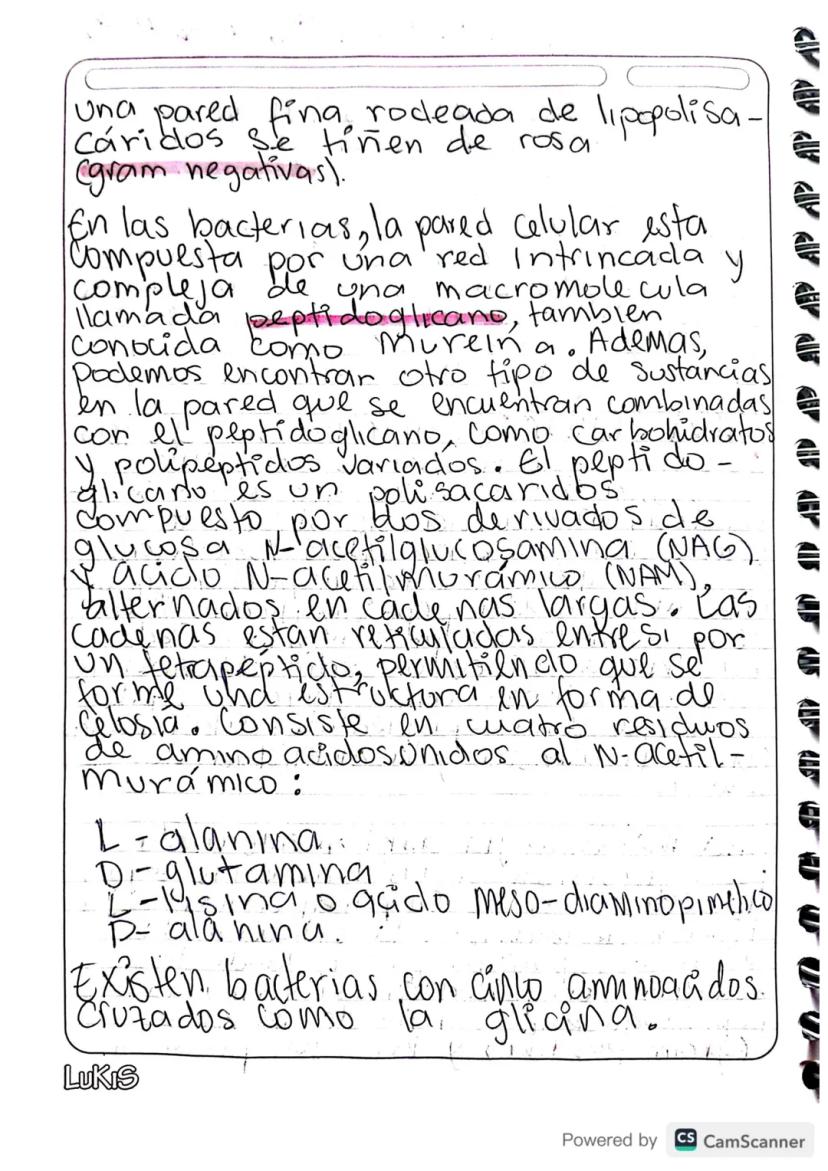 una pared fina rodeada de lipopolisa-
cáridos se tiñen de rosa
(gram negativas).
En las bacterias, la pared celular esta
compuesta por una red intrincada y
compleja de una macromolecula
llamada peptidoglicano, tambien
conocida como mureina. Ademas,
podemos encontrar otro tipo de sustancias
en la pared que se encuentran combinadas
con el peptidoglicano, como carbohidratos
y polipéptidos variados. El peptido-
glicano es un polisacaridos
compuesto por dos derivados de
glucosa N-acetilglucosamina (NAG)
y acido N-acetilmurámico (NAM),
alternados en cadenas largas. Las
cadenas estan reticuladas entre si por
un tetrapéptido, permitiendo que se
forme una estructura en forma de
celosia. Consiste en cuatro residuos
de amino acidos unidos al N-acetil-
murámico:
L-alanina
D-glutamina
L-lisina o acido meso-diaminopimelico
D-alanina.
Existen bacterias con cinco aminoacidos
cruzados como la glicina.
LUKIS
Powered by CS CamScanner